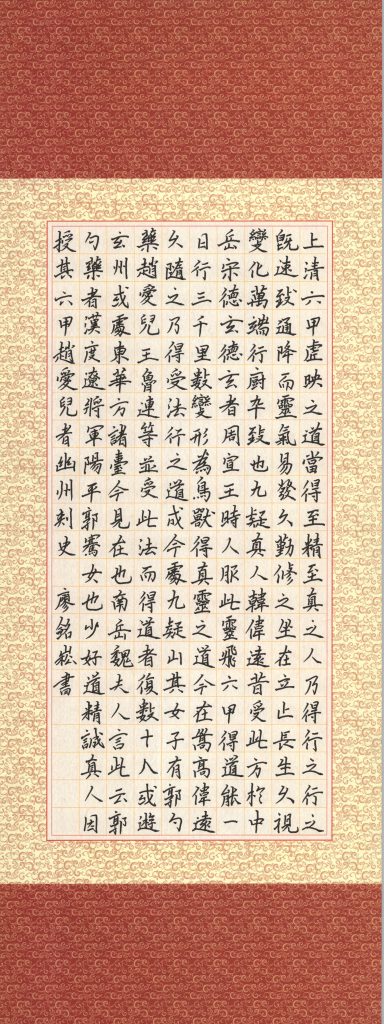 上清六甲虚映之道當得至精至真之人乃得行之行之
既速致通降而靈氣易發久勤修之坐在立亡長生久視
變化萬端行廚卒致也九疑真人韓偉遠昔受此方於中
岳宋德玄德玄者周宣王時人服此靈飛六甲得道能一
日行三千里數變形為鳥獸得真靈之道今在嵩高偉遠
久隨之乃得受法行之道成今處九疑山其女子有郭勺
藥趙愛兒王魯連等並受此法而得道者復數十人或遊
玄州或處東華方諸臺今見在也南岳魏夫人言此云郭
勺藥者漢度遼將軍陽平郭騫女也少好道精誠真人因
授其六甲趙愛兒者幽州刺史 廖銘崧書